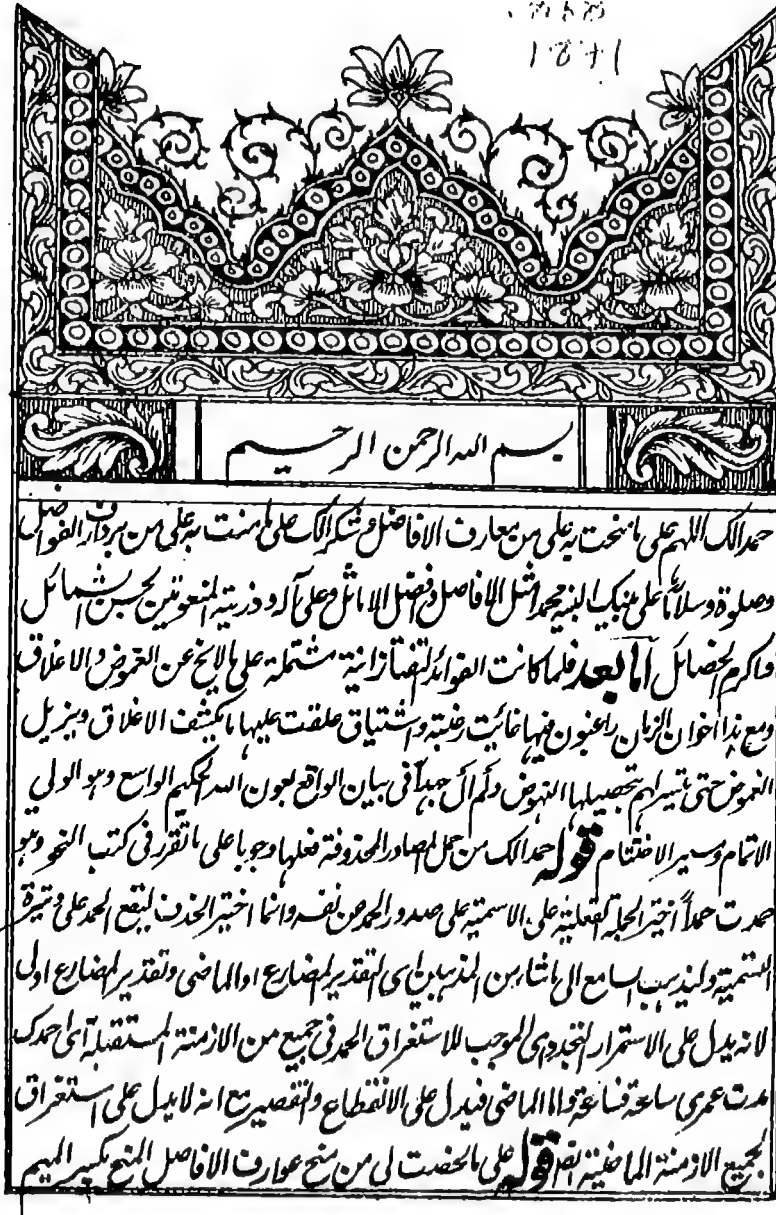 بسم الله الرحمن الرحيم
حمدالك اللهم على ما منحت به على من معارف الافاضل وشكرالك على ما مننت به على من عوارف الفواضل
وصلوة وسلاما على نبيك النبيه محمد امثل الافاضل وافضل الاماثل وعلى آله وذريته المنعوتين لحسن الشمائل
واكرم الخصائل اما بعد فلما كانت الفوائد التفتازانية مشتملة على ما لايخ عن الغموض والاغلاق
ومع هذا اخوان الزمان راغبون فيها غائيت رغبته واشتياق علقت عليها ما يكشف الاغلاق ويزيل
الغموض حتى تيسر لهم تحصيلها النهوض ولم آل جهدا فى بيان الواقع بعون الله الحكيم الواسع وهو الولي
الاتمام وميسر الاختتام قوله حمدالك من جمل المصادر المحذوفة فعلها وجوبا على ما تقرر فى كتب النحو وهو
حمدت حمداً اختير الجملة الفعلية على الاسمية على صدور الحمد من نفسه وانما اختير الحذف ليقع الحمد على وتيرة
التسمية وليذهب السامع الى ماشاء من المذهبين اى التقدير المضارع او الماضى وتقدير المضارع اولى
لانه يدل على الاستمرار التجددى الموجب للاستغراق الحمد فى جميع من الازمنة المستقبلة اى احمدك
مدت عمرى ساعة فساعة واما الماضى فيدل على الانقطاع والتقصير مع انه لايدل على استغراق
لجميع الازمنة الماضية ايضا قوله على ما لخصت لى من منح عوارف الافاضل المنح بكسر الميم